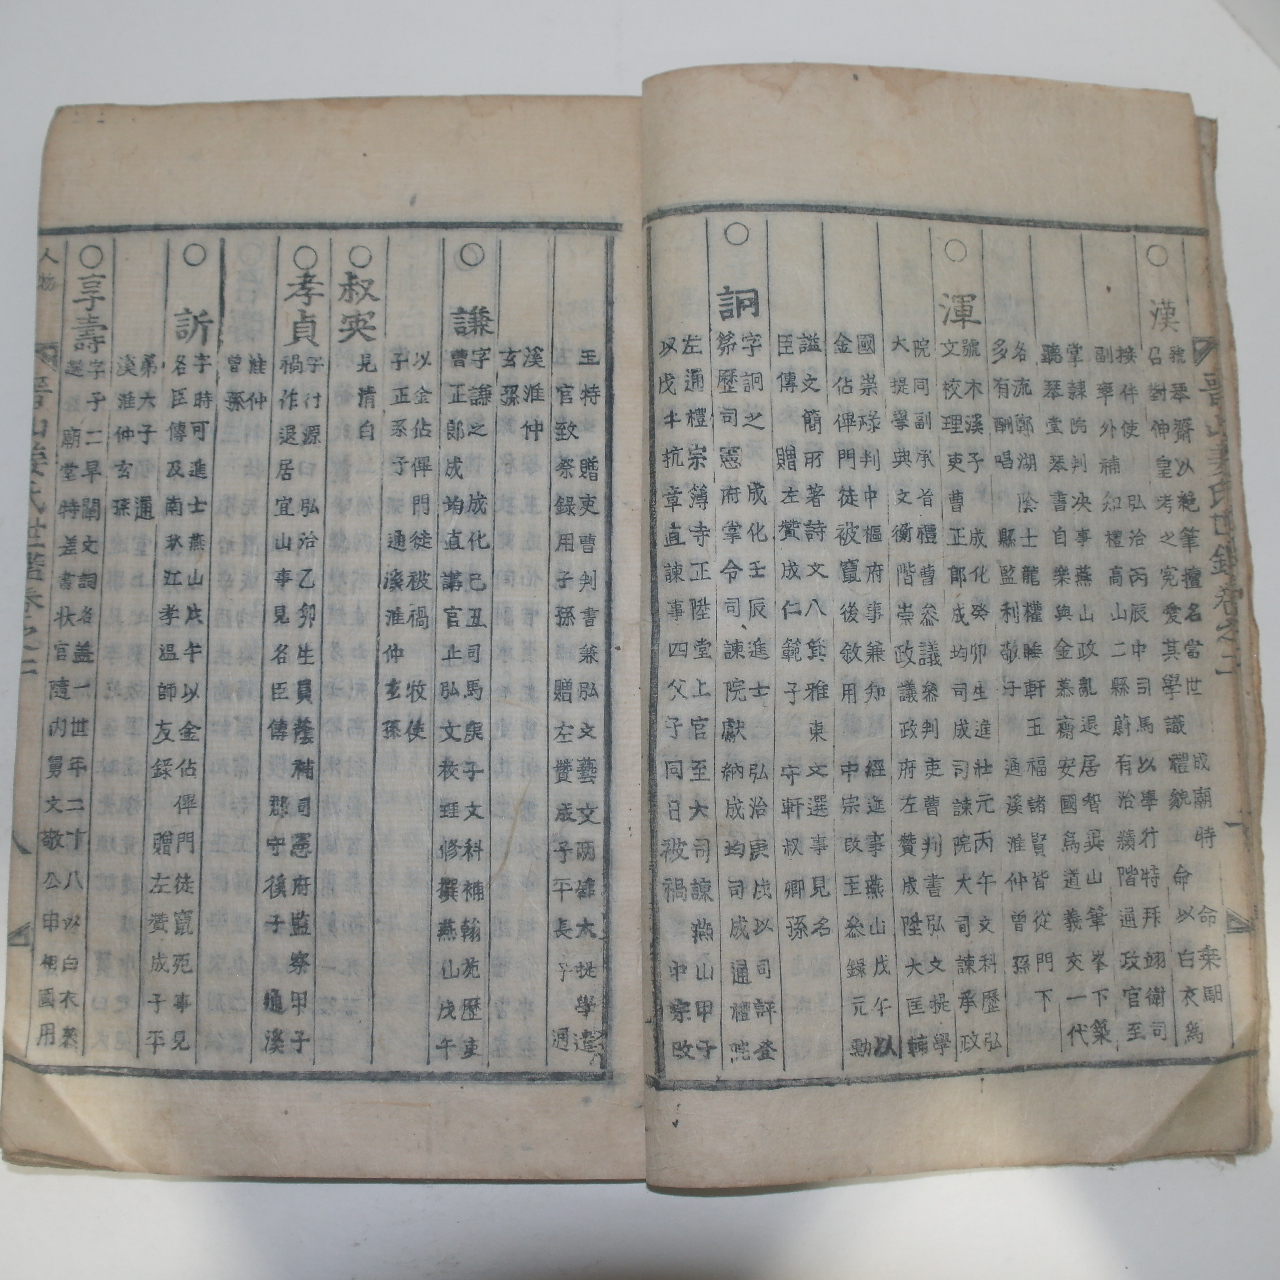 漢
號琴齋以絕筆擅名當世 成廟時 命乘馹
召對伸皇考之寃愛其學識禮貌 命以白衣爲
按件使 弘治丙辰中司馬以學行特拜翊衛司
副率外補 知禮高山二縣蔚有治績階通政官至
掌隷院判決事燕山政亂退居智異山筆峯下築
聽琴堂琴書自樂與金慕齋安國爲道義交一代
名流鄭湖陰士龍權睡軒五福諸賢皆從門下
多有酬唱 縣監利敬子通溪淮仲曾孫
渾
號木溪子 成化癸卯生進壯元丙午文科歷弘
文校理吏曹正郞成均司成司諫院大司諫承政
院同副承旨禮曹參議參判吏曹判書弘文提學
大提學典文衡階崇政議政府左贊成陞大匡輔
國崇祿判中樞府事兼知 經筵事燕山戊午以
金佔俾門徒被竄後敘用中宗改玉參錄元勳
謚文簡所著詩文八箕雅東文選事見名
臣傳 贈左贊成仁範子 守軒叔卿孫
詗
字詗之 成化壬辰進士 弘治庚戌以司評登
第歷司憲府掌令司諫院獻納成均司成通禮院
左通禮宗簿寺正陞堂上官至大司諫燕山甲子
以戊午抗章直諫事四父子同日被禍 中宗改
玉特 贈吏曹判書兼弘文藝文兩館大提學遣
官致祭錄用子孫 贈左贊成子平長子 通
溪淮仲
玄孫
謙
字謙之 成化己丑司馬庚子文科補翰苑歷吏
曹正郞成均直講官止弘文校理修撰燕仙戊午
以金佔俾門徒被禍 牧使
子正系子 通溪淮仲玄孫
叔突
見淸白
孝貞
字行源 弘治乙卯生員蔭補司憲府監察甲子
禍作退居宜山事見名臣傳 郡守徯子 通溪
淮仲
曾孫
訢
字時可進士燕山戊午 以金佔俾門徒竄死事見
名臣傳及南秋江孝溫師友錄 贈左贊成子平
弟六子 通
溪淮仲玄孫
享壽
字子二早闡文詞名盖一世年二十八以白衣義
選 廟堂特差書狀官隨內舅文敬公申相國用
人物
晋山姜氏世錄卷之二
晋山姜氏世錄卷之二